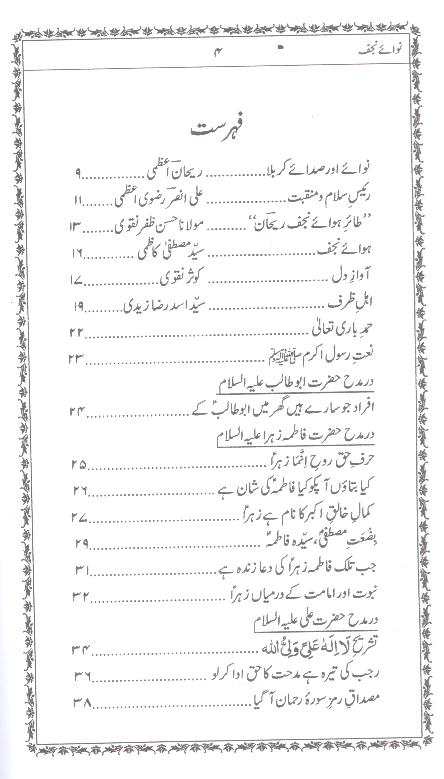 نوائے نجف ۴
فہرست
نوائے اور صدائے کربلا .................. ریحان اعظمی .................. ۹
رئیسِ سلام و منقبت .................. علی انصر رضوی اعظمی .................. ۱۱
”طائرِ ہوائے نجف ریحان“ .................. مولانا حسن ظفر نقوی .................. ۱۳
ہوائے نجف .................. سیّد مصطفیٰ کاظمی .................. ۱۶
آوازِ دل .................. کوثر نقوی .................. ۱۷
اہلِ ظرف .................. سیّد اسد رضا زیدی .................. ۱۹
حمدِ باری تعالیٰ .................. ۲۲
نعتِ رسول اکرم ﷺ .................. ۲۳
در مدح حضرت ابو طالب علیہ السلام
افراد جو سارے ہیں گھر میں ابو طالبؑ کے .................. ۲۴
در مدح حضرت فاطمہ زہرا علیہ السلام
حرفِ حق روحِ اِنَّما زہراؑ .................. ۲۵
کیا بتاؤں آپکو کیا فاطمہؑ کی شان ہے .................. ۲۶
کمالِ خالقِ اکبر کا نام ہے زہراؑ .................. ۲۷
بِضْعَتِ مصطفیٰؐ، سیّدہ فاطمہؑ .................. ۲۹
جب تلک فاطمہ زہراؑ کی دعا زندہ ہے .................. ۳۱
نبوت اور امامت کے درمیاں زہراؑ .................. ۳۲
در مدح حضرت علی علیہ السلام
تشریحِ لَا اِلٰهَ عَلِیٌّ وَلِیُّ اللّٰه .................. ۳۴
رجب کی تیرہ ہے مدحت کا حق ادا کر لو .................. ۳۶
مصداقِ رمزِ سورۂ رحمان آ گیا .................. ۳۸